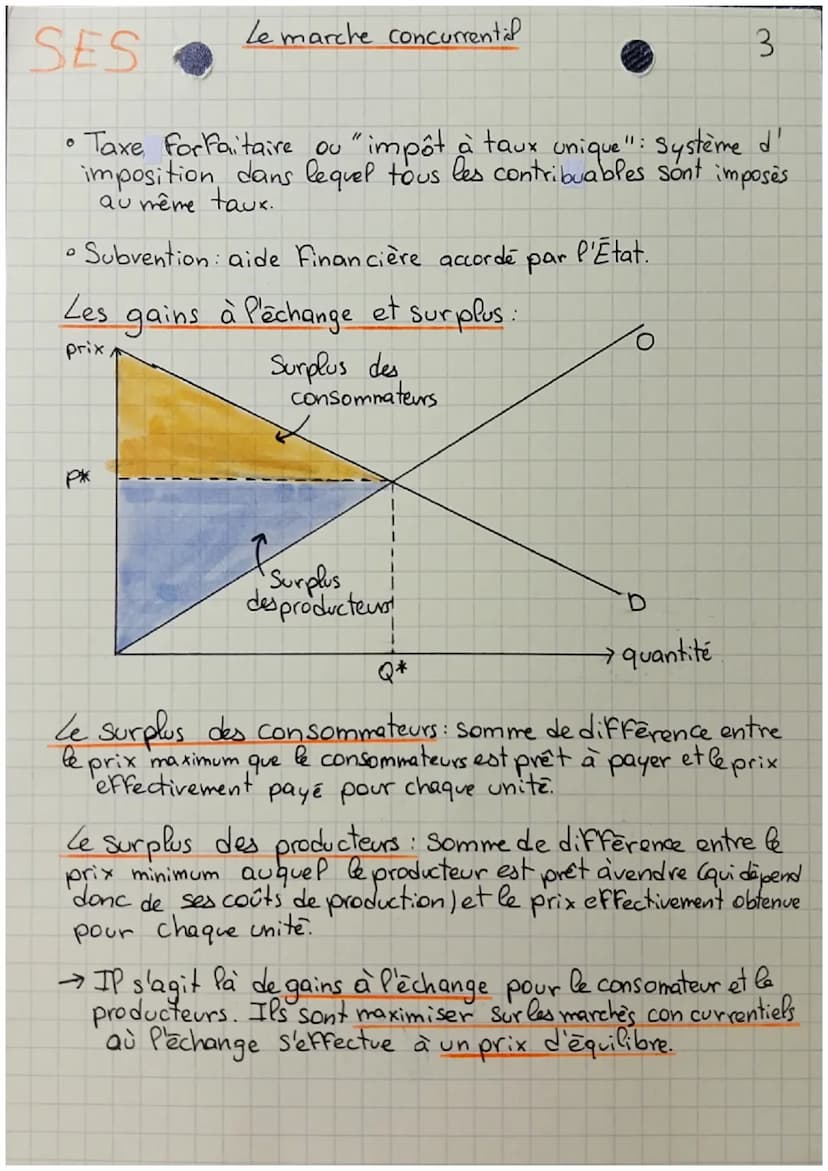 SES
Le marche concurrentiel
3
• Taxe forfaitaire ou "impôt à taux unique": Système d'
imposition dans lequel tous les contribuables sont imposés
au même taux.
• Subvention: aide financière accordé par l'État.
Les gains à l'échange et surplus:
prix
O
Surplus des
consommateurs
P*
Surplus
des producteurs
D
quantité
Q*
Le surplus des consommateurs: somme de différence entre
le prix maximum que le consommateurs est prêt à payer et le prix
effectivement payé pour chaque unité.
Le surplus des producteurs: somme de différence entre le
prix minimum auquel le producteur est prêt à vendre (qui dépend
donc de ses coûts de production) et le prix effectivement obtenue
pour chaque unité.
→ Il s'agit là de gains à l'échange pour le consomateur et le
producteurs. Ils sont maximiser sur les marchés concurrentiels
où l'échange s'effectue à un prix d'équilibre.